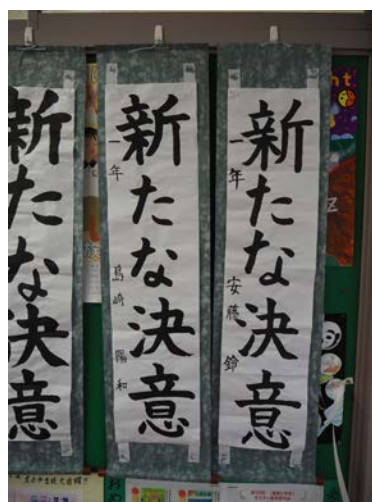 新たな決意
一年 安藤 鈴
新たな決意
一年 島崎 陽和
新たな決意